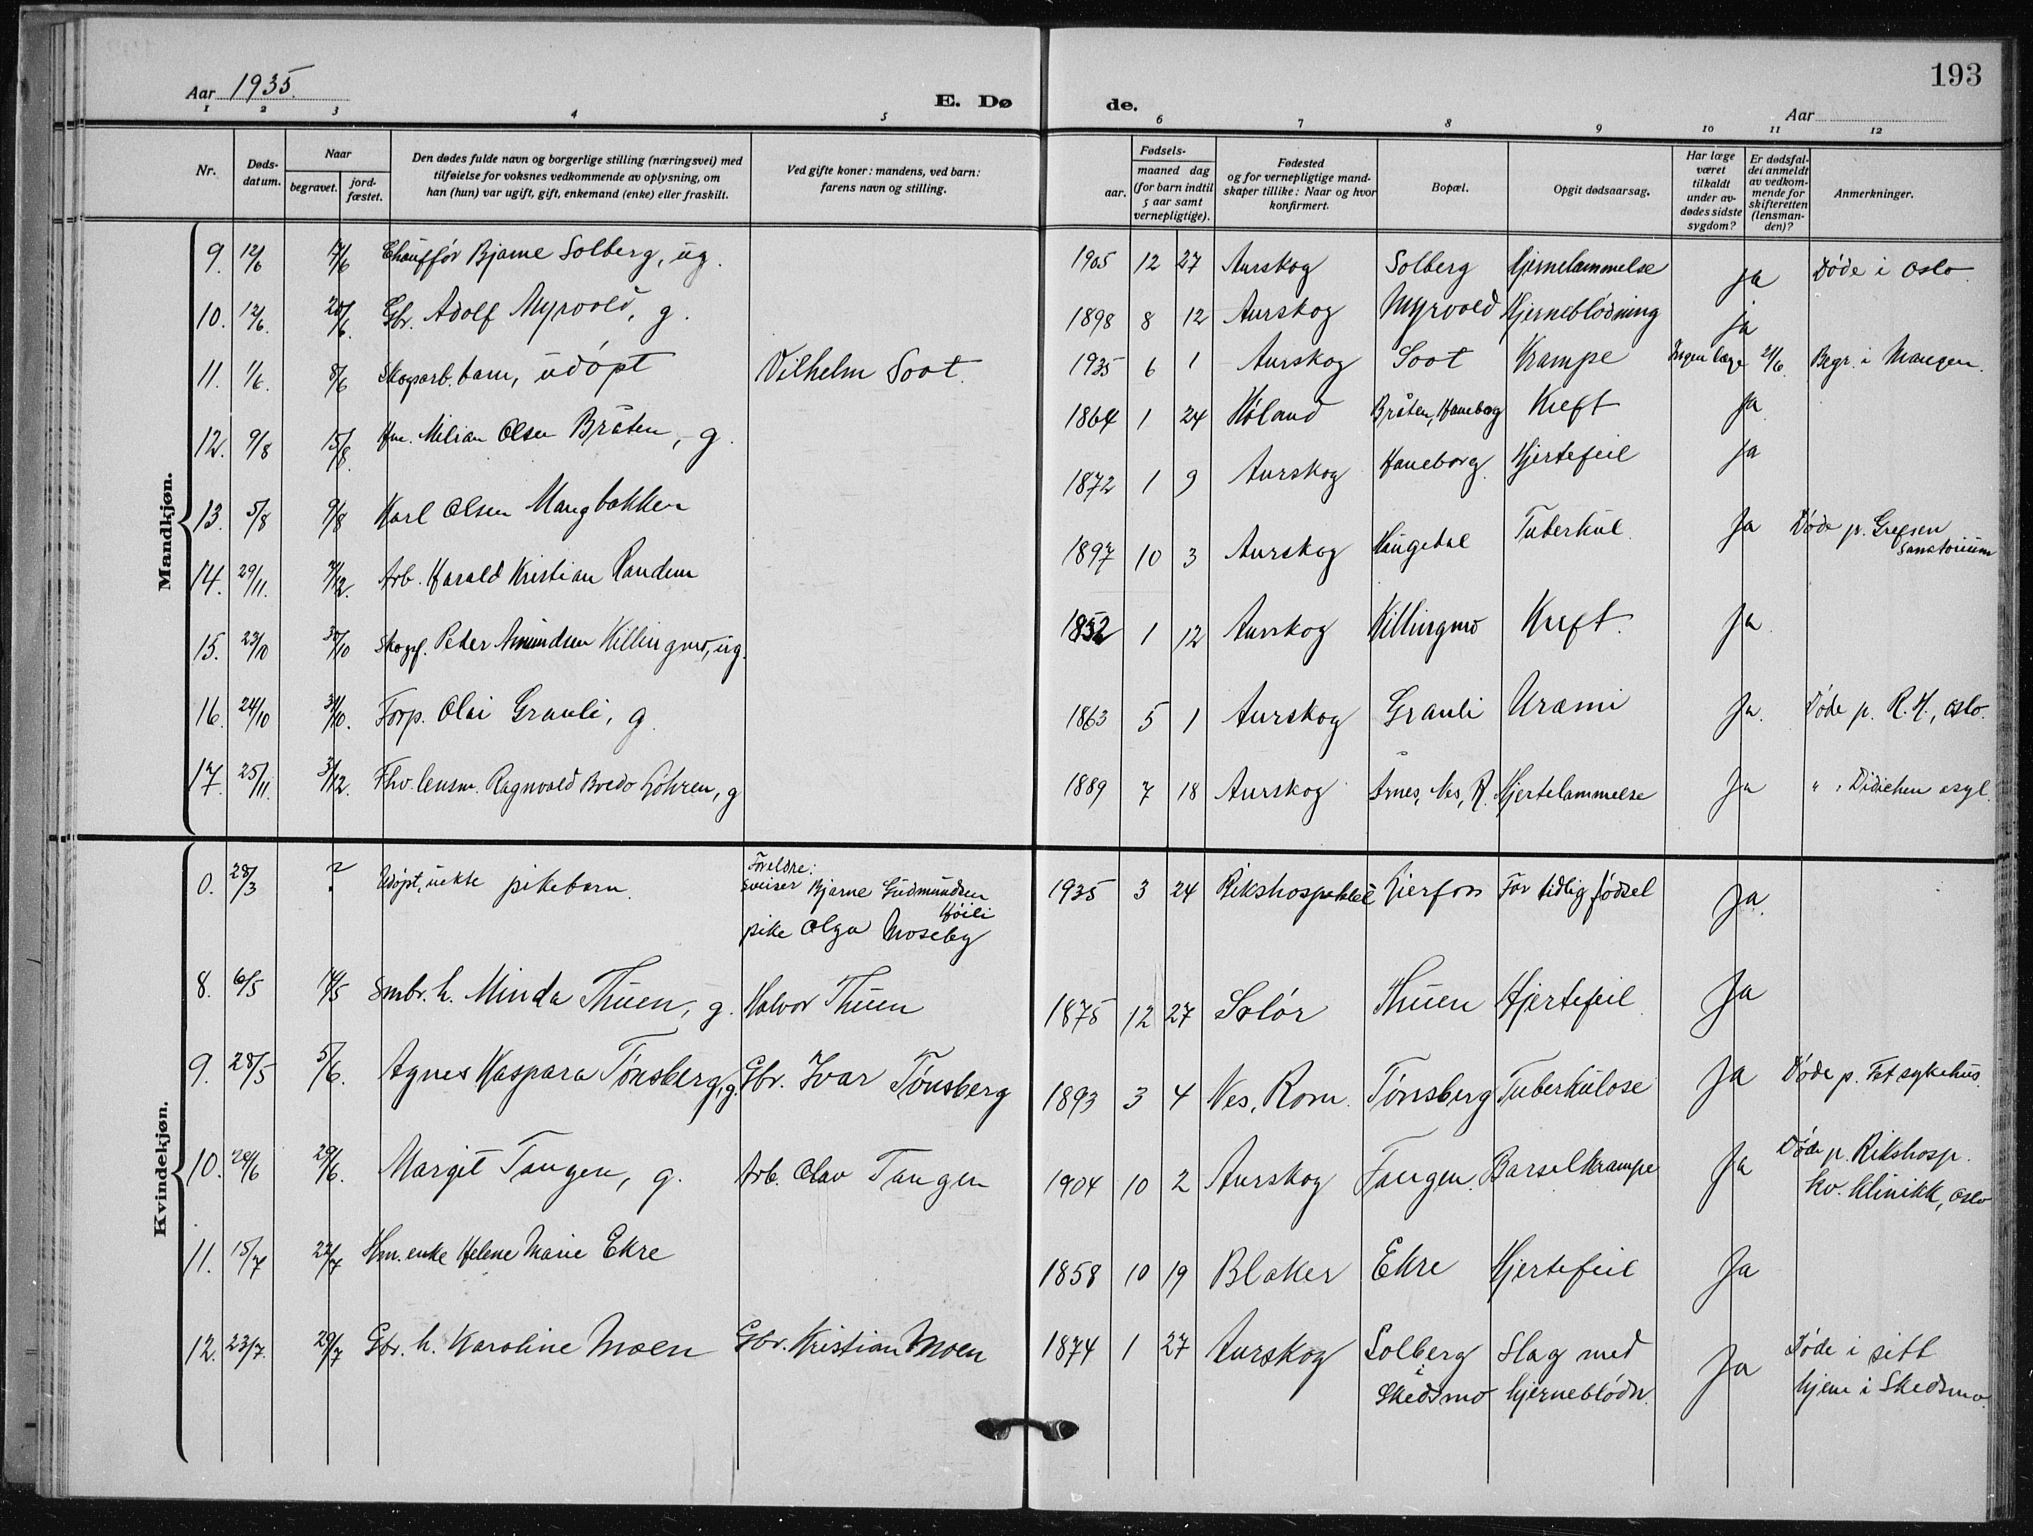 193
Aar 1935.
E. Dø
de.
Aar
1 2 3 4 5 6 7 8 9 10 11 12
Nr.
Døds-
datum.
Naar
begravet.
jord-
fæstet.
Den dødes fulde navn og borgerlige stilling (næringsvei) med
tilføielse for voksnes vedkommende av oplysning, om
han (hun) var ugift, gift, enkemand (enke) eller fraskilt.
Ved gifte koner: mandens, ved barn:
farens navn og stilling.
Fødsels-
aar.
maaned dag
(for barn indtil
5 aar samt
vernepligtige).
Fødested
og for vernepligtige mand-
skaper tillike: Naar og hvor
konfirmert.
Bopæl.
Opgit dødsaarsag.
Har læge
været
tilkaldt
under av-
dødes sidste
sygdom?
Er dødsfal-
det anmeldt
av vedkom-
mende for
skifteretten
(lensman-
den)?
Anmerkninger.
Mandkjøn.
9. 12/6 17/6 Chauffør Bjarne Solberg, ug. 1905 12 27 Aurskog Solberg Hjernelammelse Ja Døde i Oslo.
10. 12/6. 20/6 Gbr. Adolf Myrvold, g. 1898 8 12 Aurskog Myrvold Hjerneblødning ja
11. 1/6. 8/6 Skogsarb. barn, udöpt Vilhelm Soot. 1935 6 1 Aurskog Soot Krampe Ingen læge 21/6. Begr. i Mangen.
12. 9/8 15/8 Hm. Milian Olsen Bråten, g. 1864 1 24 Høland Bråten, Haneborg Kreft Ja
13. 5/8 9/8 Karl Olsen Mangbakken 1872 1 9 Aurskog Haneborg Hjertefeil Ja
14. 29/11. 7/12. Arb. Harald Kristian Randem 1897 10 3 Aurskog Haugedal Tuberkul. Ja Døde p. Grefsen
Sanatorium
15. 23/10 30/10 Skogf. Peder Amundsen Killingmo, ug. 1852 1 12 Aurskog Killingmo Kreft. Ja
16. 24/10 31/10. Forp. Olai Granli, g. 1863 5 1 Aurskog Granli Uræmi Ja. Døde p. R. H., Oslo.
17. 25/11. 3/12. Fhv. lensm. Ragnvald Bredo Løhren, g 1889 7 18 Aurskog Årnes, Nes, R. Hjertelammelse Ja " , Didichen asyl.
Kvindekjøn.
0. 28/3 ? Udöpt, uekte pikebarn. Foreldre:
sveiser Bjarne Gudmundsen
Høili
pike Olga Moseby 1935 3 24 Rikshospitalet Lierfoss For tidlig fødsel Ja.
8. 6/5 14/5 Smbr. h. Minda Thuen, g. Halvor Thuen 1875 12 27 Solör Thuen Hjertefeil Ja
9. 28/5 5/6. Agnes Kaspara Tønsberg, g. Gbr. Ivar Tønsberg 1893 3 4 Nes, Rom. Tønsberg Tuberkulose Ja Døde p. Fet sykehus.
10. 24/6 29/6. Margit Tangen, g. Arb. Olav Tangen 1904 10 2 Aurskog Tangen Barselkrampe Ja Døde p. Rikshosp.
kv. klinikk, Oslo
11. 15/7 22/7 Hm. enke Helene Marie Ekre 1858 10 19 Blaker Ekre Hjertefeil Ja
12. 23/7. 29/7 Gbr. h. Karoline Moen Gbr. Kristian Moen 1874 1 27 Aurskog Solberg
i
Skedsmo Slag med
hjerneblødn. Ja Døde i sitt
hjem i Skedsmo.